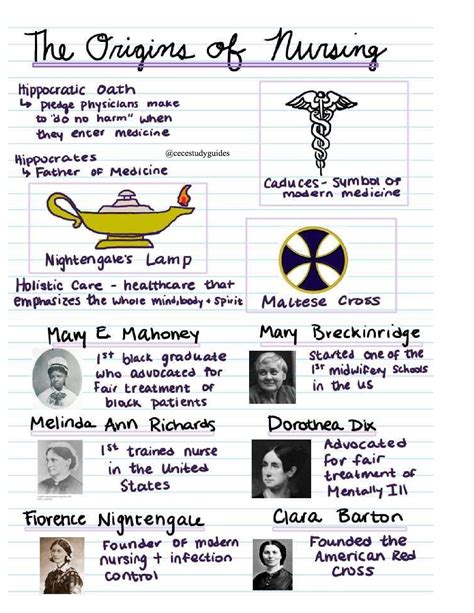 The Origins of Nursing
Hippocratic Oath
↳ Pledge physicians make
to "do no harm" when
they enter medicine
@cecestudyguides
Hippocrates
↳ Father of Medicine
Caduces - Symbol of
modern medicine
Nightengale's Lamp
Holistic Care - healthcare that
emphasizes the whole mind, body + spirit
Maltese Cross
Mary E Mahoney
1st black graduate
who advocated for
fair treatment of
black patients
Mary Breckinridge
Started one of the
1st midwifery schools
in the US
Melinda Ann Richards
1st trained nurse
in the United
States
Dorothea Dix
Advocated
for fair
treatment of
Mentally Ill
Florence Nightengale
Founder of modern
nursing + infection
control
Clara Barton
Founded the
American Red
Cross